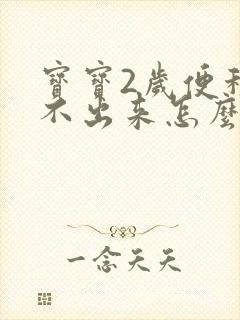 寶寶2歲便
不出来怎麼
一念天天